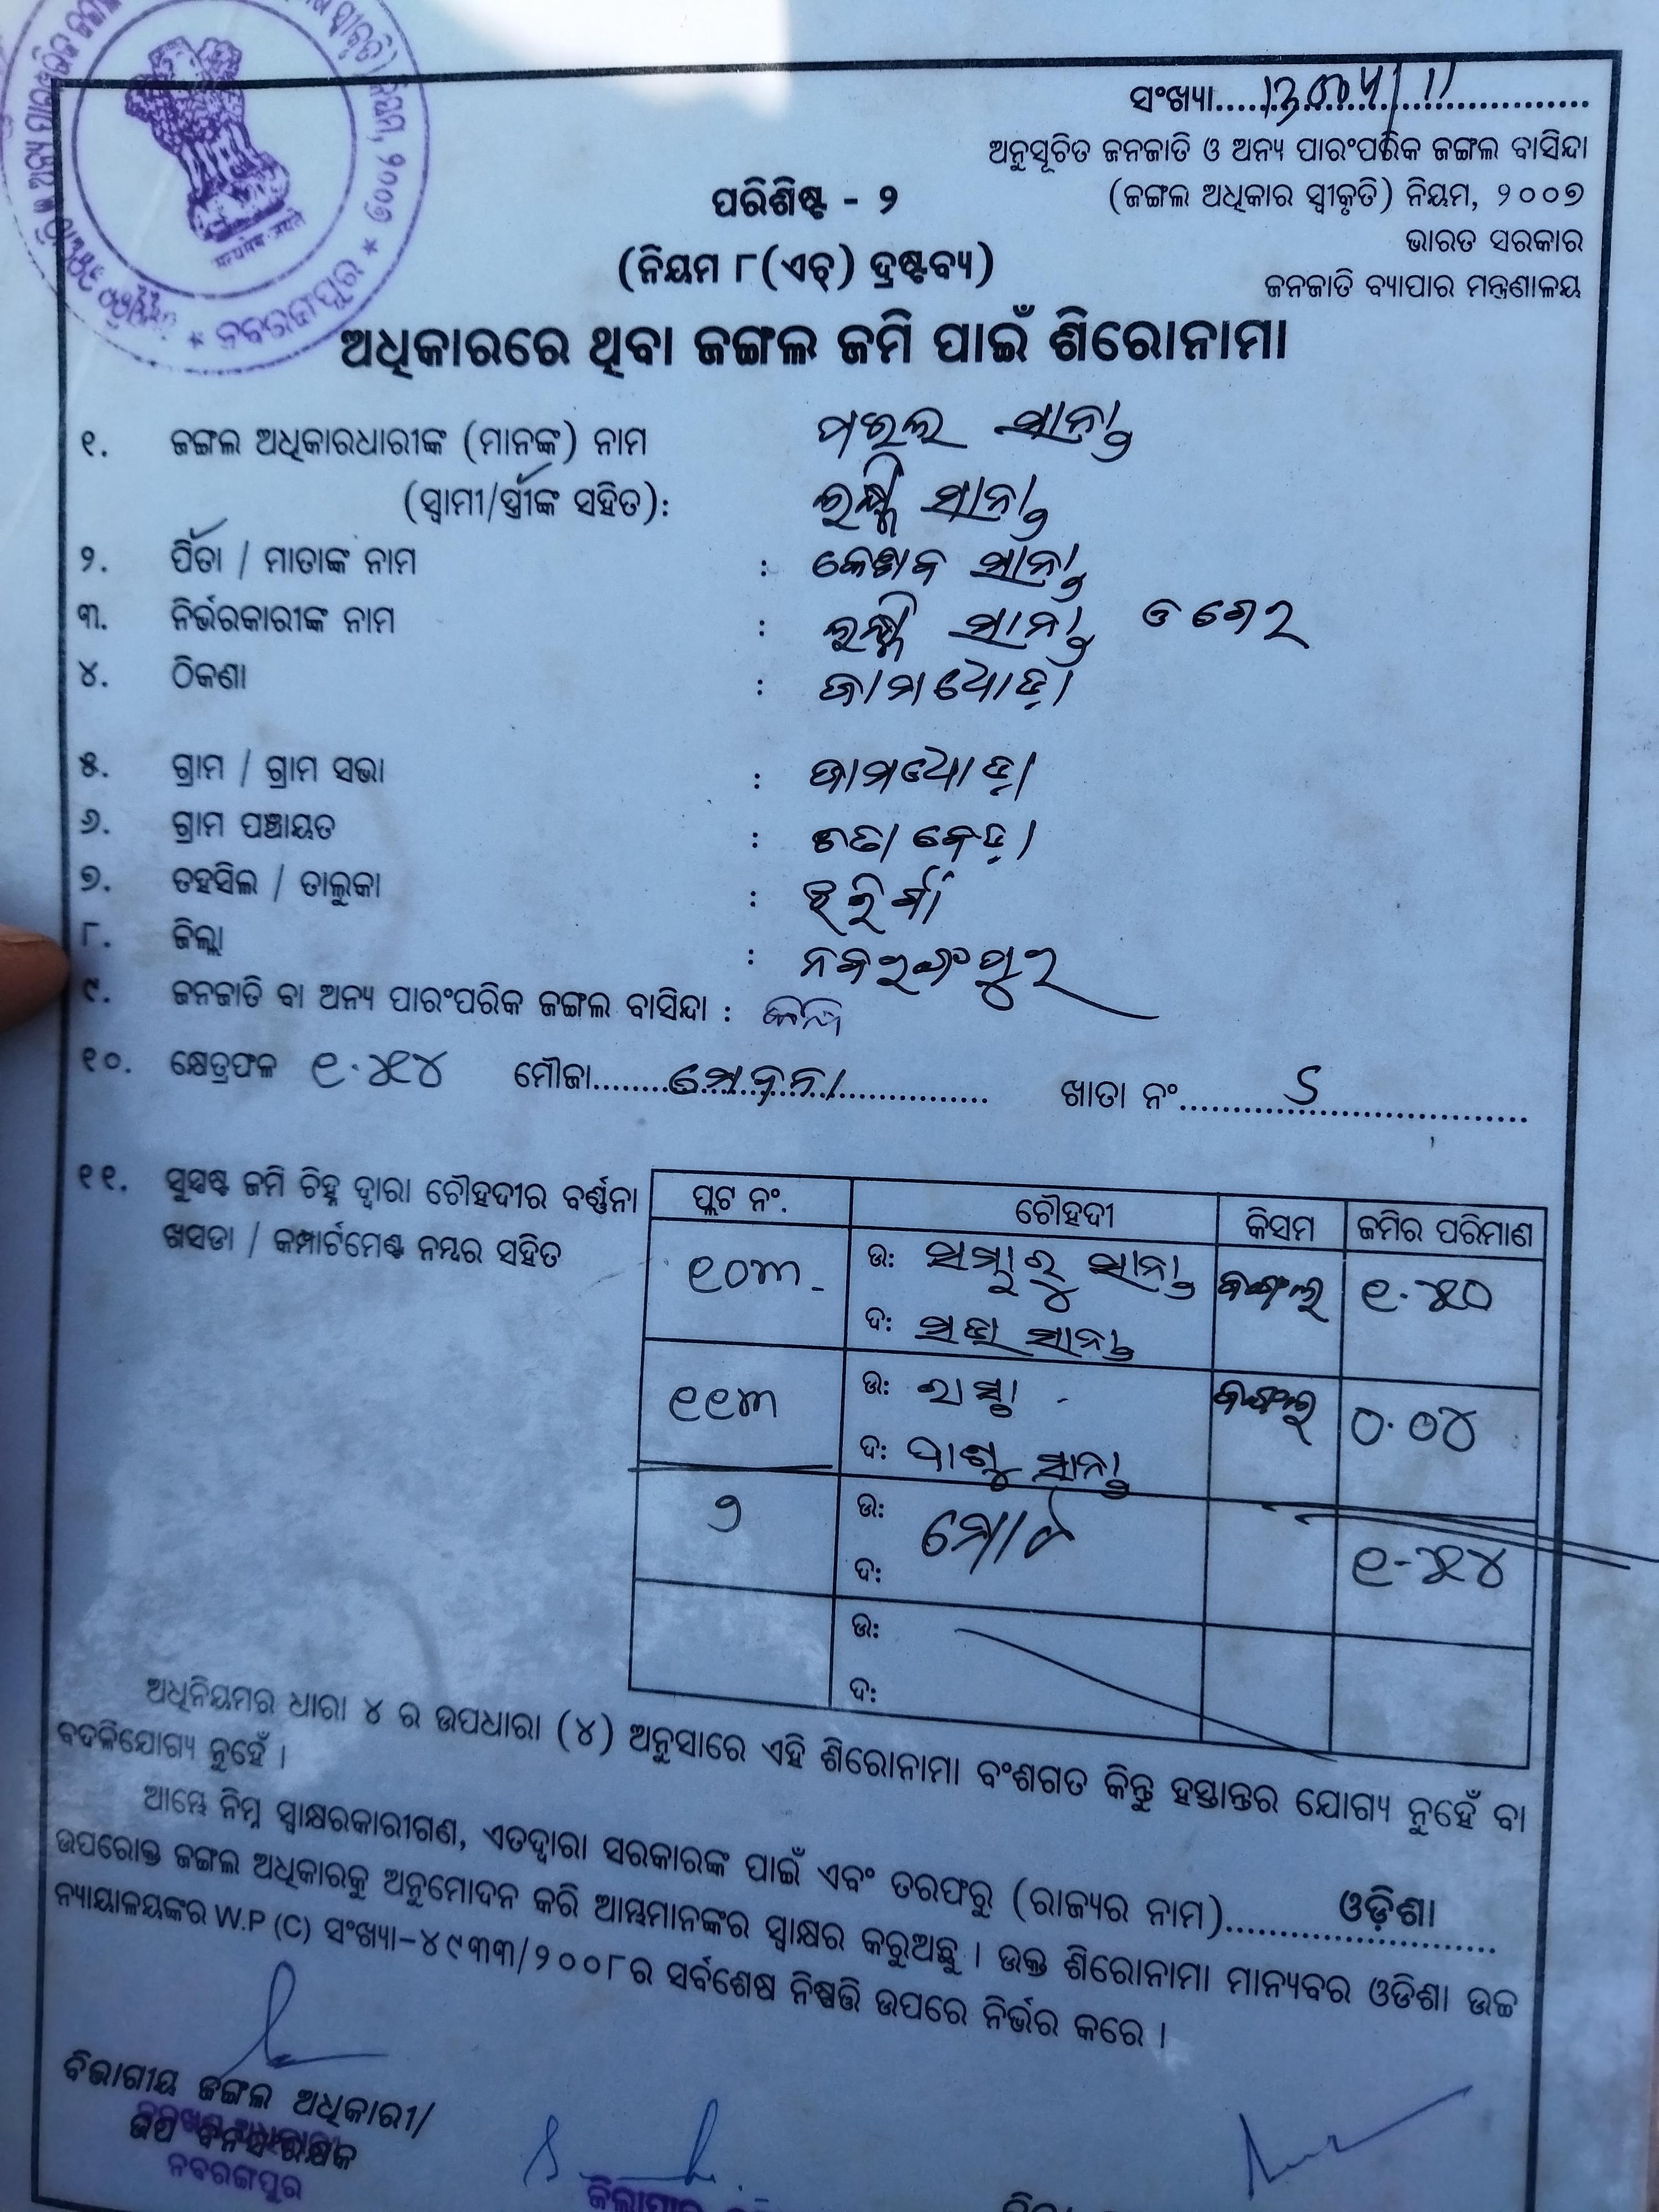 ସଂଖ୍ୟା
ଅନୁସୂଚିତ ଜନଜାତି ଓ ଅନ୍ୟ ପାରଂପରିକ ଜଙ୍ଗଲ ବାସିନ୍ଦା
ପରିଶିଷ୍ଟ - ୨
(ଜଙ୍ଗଲ ଅଧିକାର ସ୍ୱୀକୃତି) ନିୟମ, ୨୦୦୭
ଭାରତ ସରକାର
(ନିୟମ ୮(ଏଚ୍) ଦ୍ରଷ୍ଟବ୍ୟ)
ଜନଜାତି ବ୍ୟାପାର ମନ୍ତ୍ରଣାଳୟ
ନବରଙ୍ଗପୁର
ଅଧିକାରରେ ଥିବା ଜଙ୍ଗଲ ଜମି ପାଇଁ ଶିରୋନାମା
୧. ଜଙ୍ଗଲ ଅଧିକାରଧାରୀଙ୍କ (ମାନଙ୍କ) ନାମ ସାନ୍ତା
(ସ୍ୱାମୀ/ସ୍ତ୍ରୀଙ୍କ ସହିତ): ସାନ୍ତା
୨. ପିତା / ମାତାଙ୍କ ନାମ : କେଶବ ସାନ୍ତା
୩. ନିର୍ଭରକାରୀଙ୍କ ନାମ : ସାନ୍ତା ଓ
୪. ଠିକଣା : ଜାମଧୋଡ଼ା
୫. ଗ୍ରାମ / ଗ୍ରାମ ସଭା : ଜାମଧୋଡ଼ା
୬. ଗ୍ରାମ ପଞ୍ଚାୟତ :
୭. ତହସିଲ / ତାଲୁକା : ଝରିଗାଁ
୮. ଜିଲ୍ଲା : ନବରଙ୍ଗପୁର
୯. ଜନଜାତି ବା ଅନ୍ୟ ପାରଂପରିକ ଜଙ୍ଗଲ ବାସିନ୍ଦା :
୧୦. କ୍ଷେତ୍ରଫଳ ୧.୫୪ ମୌଜା ଖାତା ନଂ
୧୧. ସୁସ୍ପଷ୍ଟ ଜମି ଚିହ୍ନ ଦ୍ୱାରା ଚୌହଦୀର ବର୍ଣ୍ଣନା
ଖସଡା / କମ୍ପାର୍ଟମେଣ୍ଟ ନମ୍ବର ସହିତ
ପ୍ଲଟ ନଂ. ଚୌହଦୀ କିସମ ଜମିର ପରିମାଣ
୧୦୩ ଉ: ସାନ୍ତା ଜଙ୍ଗଲ ୧.୫୦
ଦ: ସାନ୍ତା
୧୧୩ ଉ: ରାସ୍ତା ଜଙ୍ଗଲ ୦.୦୪
ଦ: ସାନ୍ତା
୨ ଉ: ମୋଟ ୧-୫୪
ଦ:
ଉ:
ଦ:
ଅଧିନିୟମର ଧାରା ୪ ର ଉପଧାରା (୪) ଅନୁସାରେ ଏହି ଶିରୋନାମା ବଂଶଗତ କିନ୍ତୁ ହସ୍ତାନ୍ତର ଯୋଗ୍ୟ ନୁହେଁ ବା
ବଦଳିଯୋଗ୍ୟ ନୁହେଁ ।
ଆମ୍ଭେ ନିମ୍ନ ସ୍ୱାକ୍ଷରକାରୀଗଣ, ଏତଦ୍ୱାରା ସରକାରଙ୍କ ପାଇଁ ଏବଂ ତରଫରୁ (ରାଜ୍ୟର ନାମ) ଓଡ଼ିଶା
ଉପରୋକ୍ତ ଜଙ୍ଗଲ ଅଧିକାରକୁ ଅନୁମୋଦନ କରି ଆମ୍ଭମାନଙ୍କର ସ୍ୱାକ୍ଷର କରୁଅଛୁ । ଉକ୍ତ ଶିରୋନାମା ମାନ୍ୟବର ଓଡିଶା ଉଚ୍ଚ
ନ୍ୟାୟାଳୟଙ୍କର W.P (C) ସଂଖ୍ୟା-୪୯୩୩/୨୦୦୮ର ସର୍ବଶେଷ ନିଷ୍ପତ୍ତି ଉପରେ ନିର୍ଭର କରେ ।
ବିଭାଗୀୟ ଜଙ୍ଗଲ ଅଧିକାରୀ/
ଉପ ବନସଂରକ୍ଷକ
ନବରଙ୍ଗପୁର